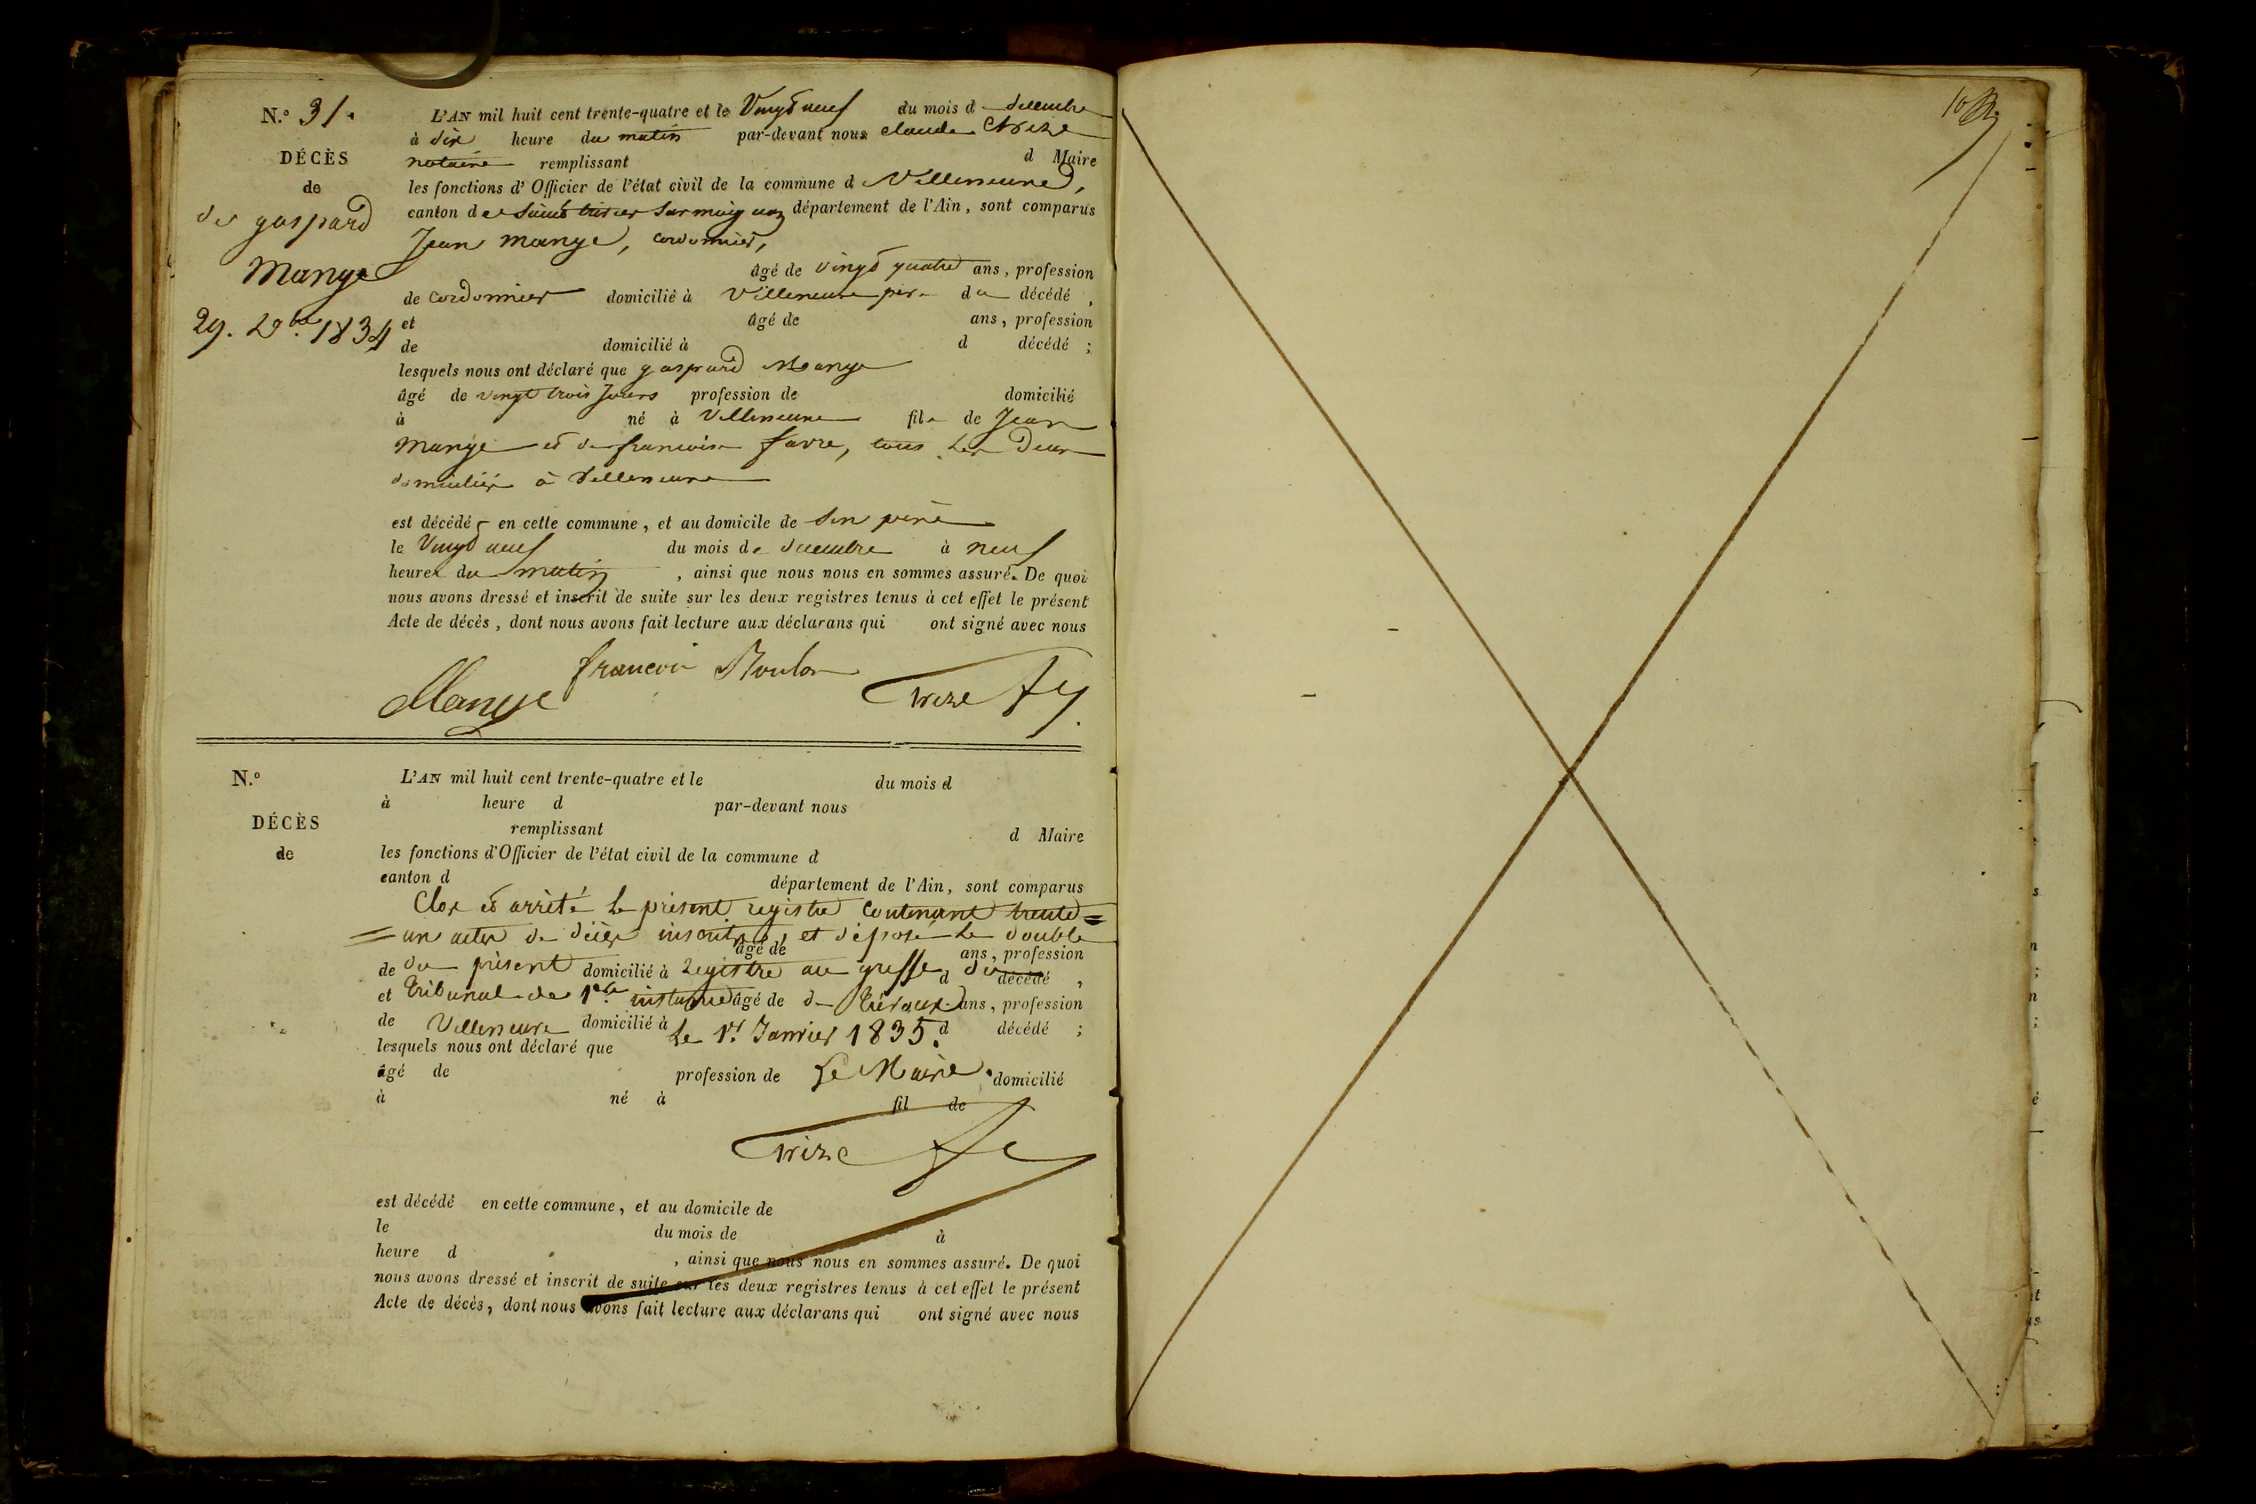 N.° 31.
DÉCÈS
de
de gaspard
Mange
29. Xbre 1834
L'AN mil huit cent trente-quatre et le Vingt neuf du mois d decembre
à dix heure du matin par-devant nous claude trize
notaire remplissant d Maire
les fonctions d'Officier de l'état civil de la commune d Villeneuve,
canton de Saint trivier sur moignans département de l'Ain, sont comparus
Jean mange, cordonnier,
âgé de vingt quatre ans, profession
de cordonnier domicilié à Villeneuve père du décédé,
et âgé de ans, profession
de domicilié à d décédé ;
lesquels nous ont déclaré que gaspard Mange
âgé de vingt trois Jours profession de domicilié
à né à Villeneuve fils de Jean
Mange et de francoise favre, tous les deux
domiciliés à Villeneuve
est décédé en cette commune, et au domicile de son père
le Vingt neuf du mois de decembre à neuf
heures du matin, ainsi que nous nous en sommes assuré. De quoi
nous avons dressé et inscrit de suite sur les deux registres tenus à cet effet le présent
Acte de décès, dont nous avons fait lecture aux déclarans qui ont signé avec nous
francois
Mange Trize
N.°
DÉCÈS
de
L'AN mil huit cent trente-quatre et le du mois d
à heure d par-devant nous
remplissant d Maire
les fonctions d'Officier de l'état civil de la commune d
canton d département de l'Ain, sont comparus
Clos et arrêté le présent registre contenant trente=
=un actes de décès inscrits, et déposé le double
âgé de ans, profession
de du présent domicilié à registre au greffe du d décédé,
et tribunal de 1ère instance âgé de de trévoux ans, profession
de Villeneuve domicilié à le 1er Janvier 1835. d décédé ;
lesquels nous ont déclaré que
âgé de profession de Le Maire domicilié
à né à fil de
Trize
est décédé en cette commune, et au domicile de
le du mois de à
heure d , ainsi que nous nous en sommes assuré. De quoi
nous avons dressé et inscrit de suite sur les deux registres tenus à cet effet le présent
Acte de décès, dont nous avons fait lecture aux déclarans qui ont signé avec nous